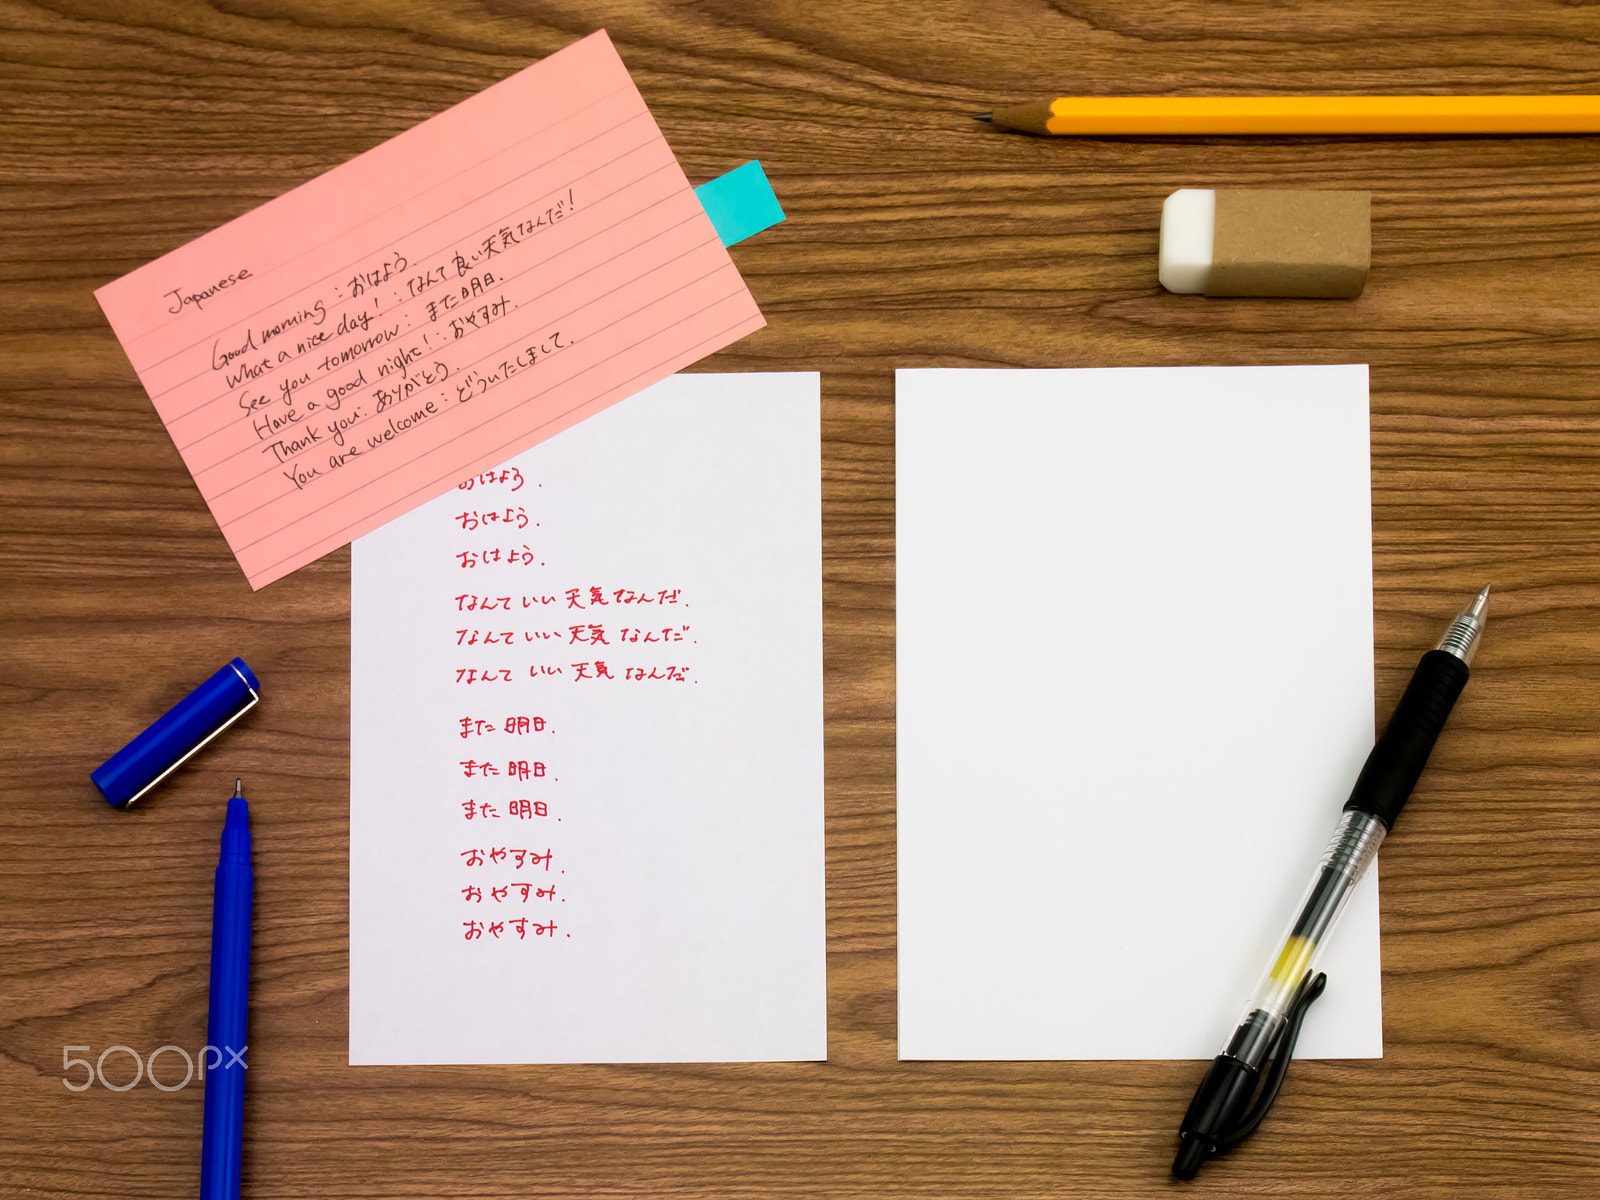 Japanese
Good morning : おはよう.
What a nice day! : なんて良い天気なんだ!
See you tomorrow : また明日.
Have a good night! : おやすみ.
Thank you : ありがとう.
You are welcome : どういたしまして.
おはよう.
おはよう.
おはよう.
なんていい天気なんだ.
なんていい天気なんだ.
なんていい天気なんだ.
また明日.
また明日.
また明日.
おやすみ.
おやすみ.
おやすみ.
500px